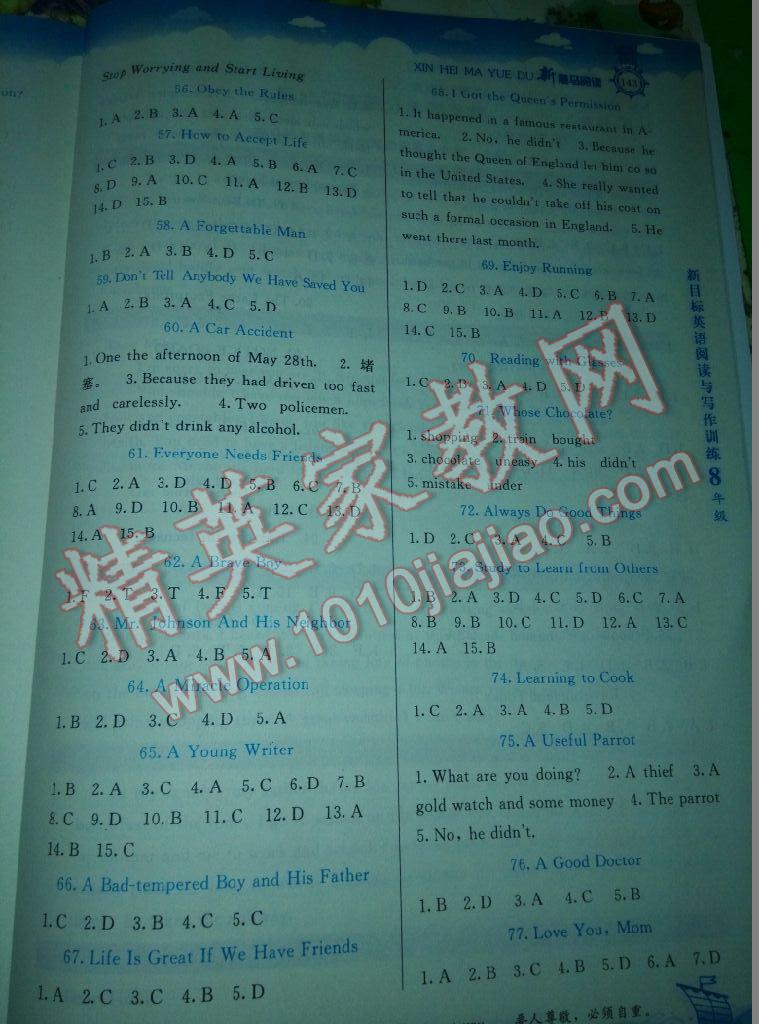 Stop Worrying and Start Living
56. Obey the Rules
1. A 2. B 3. A 4. A 5. C
57. How to Accept Life
1. C 2. B 3. D 4. A 5. B 6. A 7. C
8. D 9. A 10. C 11. A 12. B 13. D
14. D 15. B
58. A Forgettable Man
1. B 2. A 3. B 4. D 5. C
59. Don't Tell Anybody We Have Saved You
1. A 2. B 3. A 4. C 5. D
60. A Car Accident
1. One the afternoon of May 28th. 2. 堵
塞。 3. Because they had driven too fast
and carelessly. 4. Two policemen.
5. They didn't drink any alcohol.
61. Everyone Needs Friends
1. C 2. A 3. D 4. D 5. B 6. C 7. B
8. A 9. D 10. B 11. A 12. C 13. D
14. A 15. B
62. A Brave Boy
1. F 2. T 3. T 4. F 5. T
63. Mr. Johnson And His Neighbor
1. C 2. D 3. A 4. B 5. A
64. A Miracle Operation
1. B 2. D 3. C 4. D 5. A
65. A Young Writer
1. B 2. A 3. C 4. A 5. C 6. D 7. B
8. C 9. D 10. B 11. C 12. D 13. A
14. B 15. C
66. A Bad-tempered Boy and His Father
1. C 2. D 3. B 4. C 5. C
67. Life Is Great If We Have Friends
1. A 2. C 3. C 4. B 5. D
XIN HEI MA YUE DU 新黑马阅读 143
68. I Got the Queen's Permission
1. It happened in a famous restaurant in A-
merica. 2. No, he didn't 3. Because he
thought the Queen of England let him co so
in the United States. 4. She really wanted
to tell that he couldn't take off his coat on
such a formal occasion in England. 5. He
went there last month.
69. Enjoy Running
1. D 2. C 3. A 4. D 5. C 6. B 7. A
8. C 9. B 10. B 11. A 12. D 13. B
14. C 15. B
70. Reading with Glasses
1. C 2. B 3. A 4. D 5. D
71. Whose Chocolate?
1. shopping 2. train bought
3. chocolate uneasy 4. his didn't
5. mistake under
72. Always Do Good Things
1. D 2. C 3. A 4. C 5. B
73. Study to Learn from Others
1. B 2. A 3. D 4. C 5. D 6. C 7. A
8. B 9. B 10. C 11. D 12. A 13. C
14. A 15. B
74. Learning to Cook
1. C 2. A 3. A 4. B 5. D
75. A Useful Parrot
1. What are you doing? 2. A thief 3. A
gold watch and some money 4. The parrot
5. No, he didn't.
76. A Good Doctor
1. B 2. D 3. A 4. C 5. B
77. Love You, Mom
1. A 2. B 3. C 4. B 5. D 6. A 7. D
新目标英语阅读与写作训练 8 年级
要人尊敬，必须自重。
精英家教网
www.1010jiajiao.com